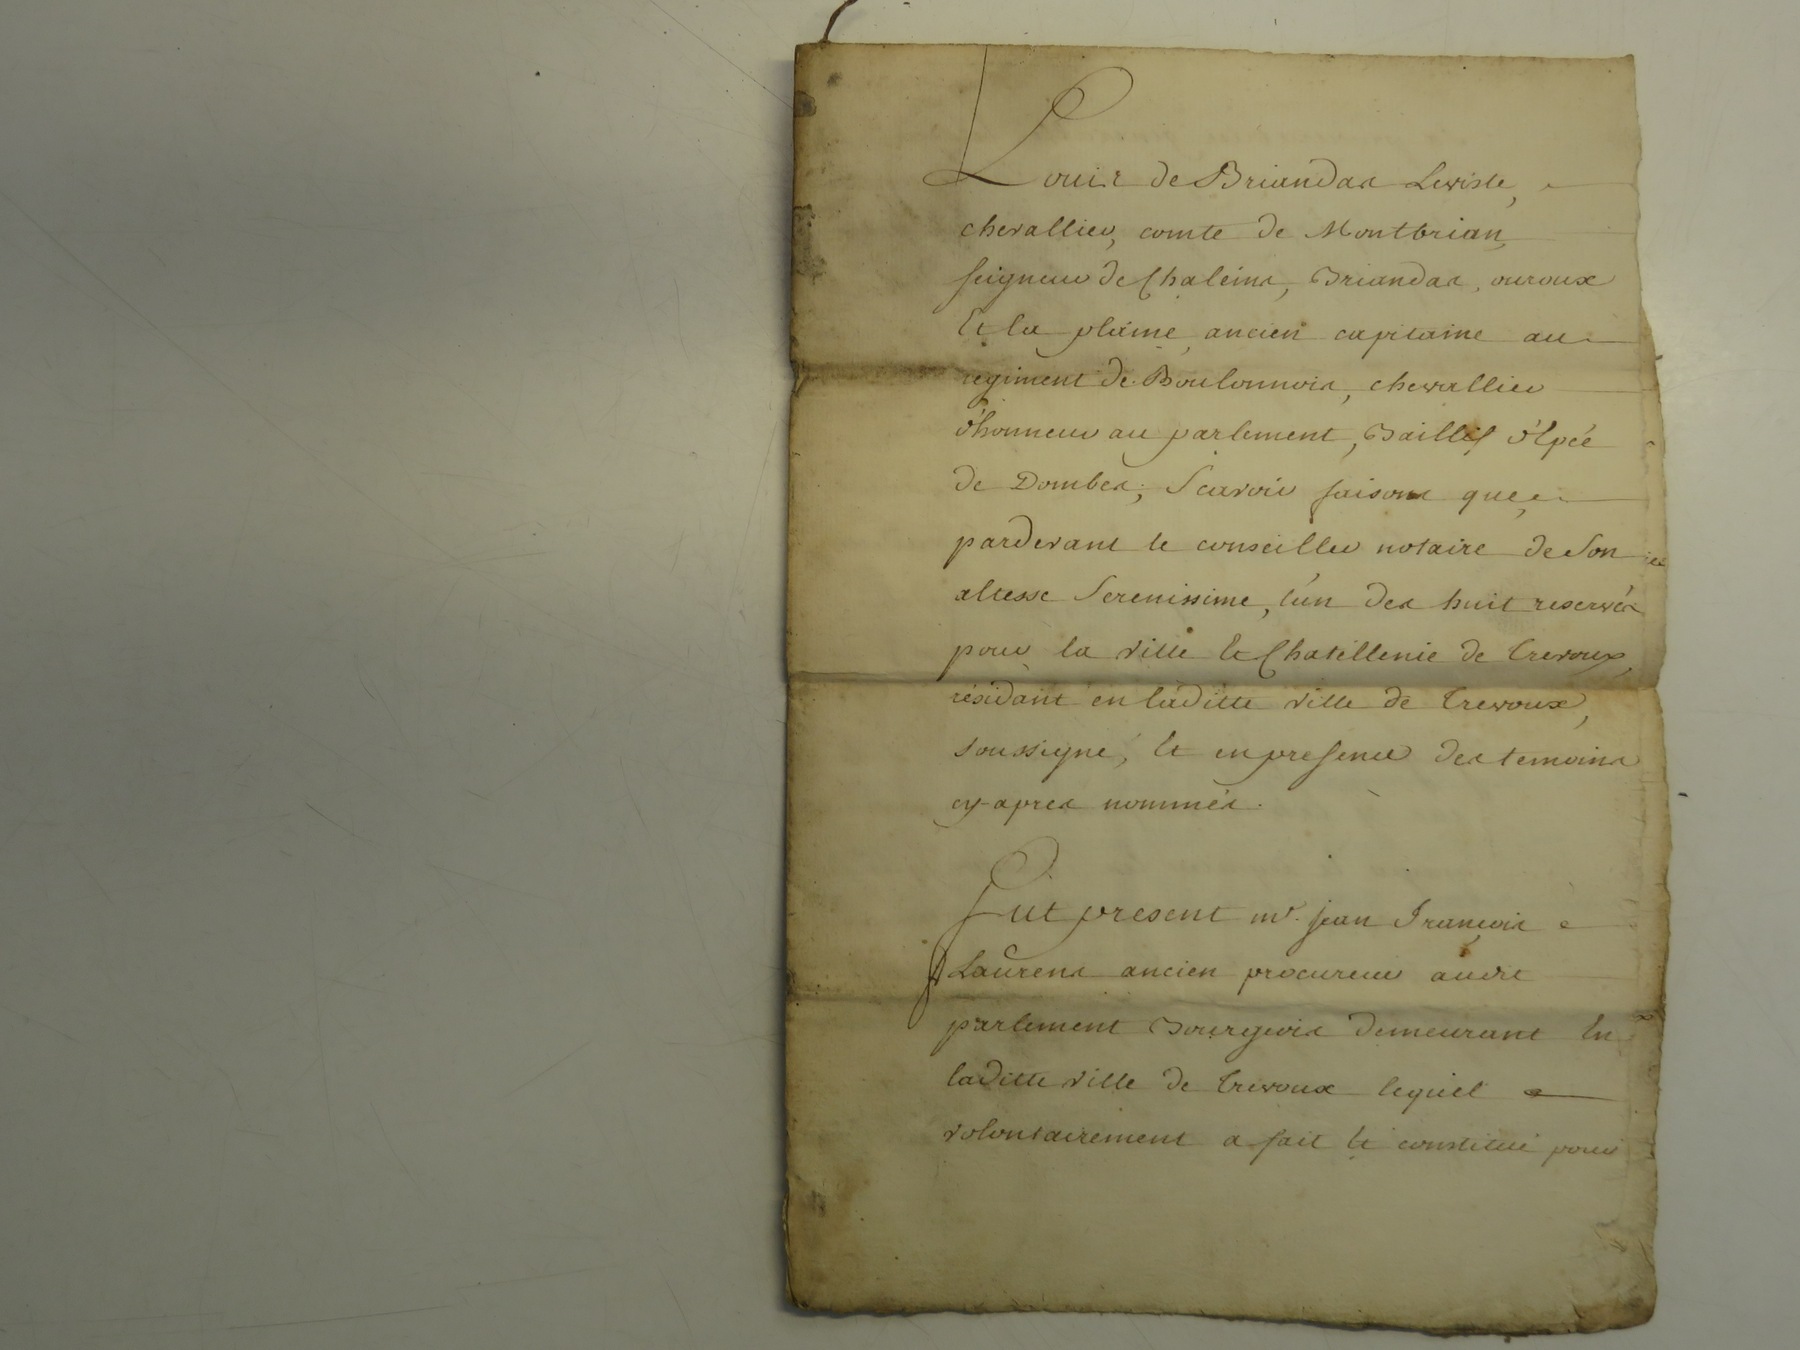 Louis de Briandas Leviste,
chevallier, comte de Montbrian,
seigneur de Chaleins, Briandas, ouroux
Et la plaine, ancien capitaine au
regiment de Boulonnois, chevallier
d'honneur au parlement, Baillif d'Epée
de Dombes; Scavoir faisons que,
pardevant le conseiller notaire de Son
altesse Serenissime, l'un des huit reservés
pour la ville et Chatellenie de Trevoux,
résidant en laditte ville de Trevoux,
soussigné, Et en presence des temoins
cy-apres nommés.
Fut present mr. jean François
Laurens ancien procureur audit
parlement Bourgeois demeurant En
laditte ville de Trevoux lequel
volontairement a fait Et constitué pour